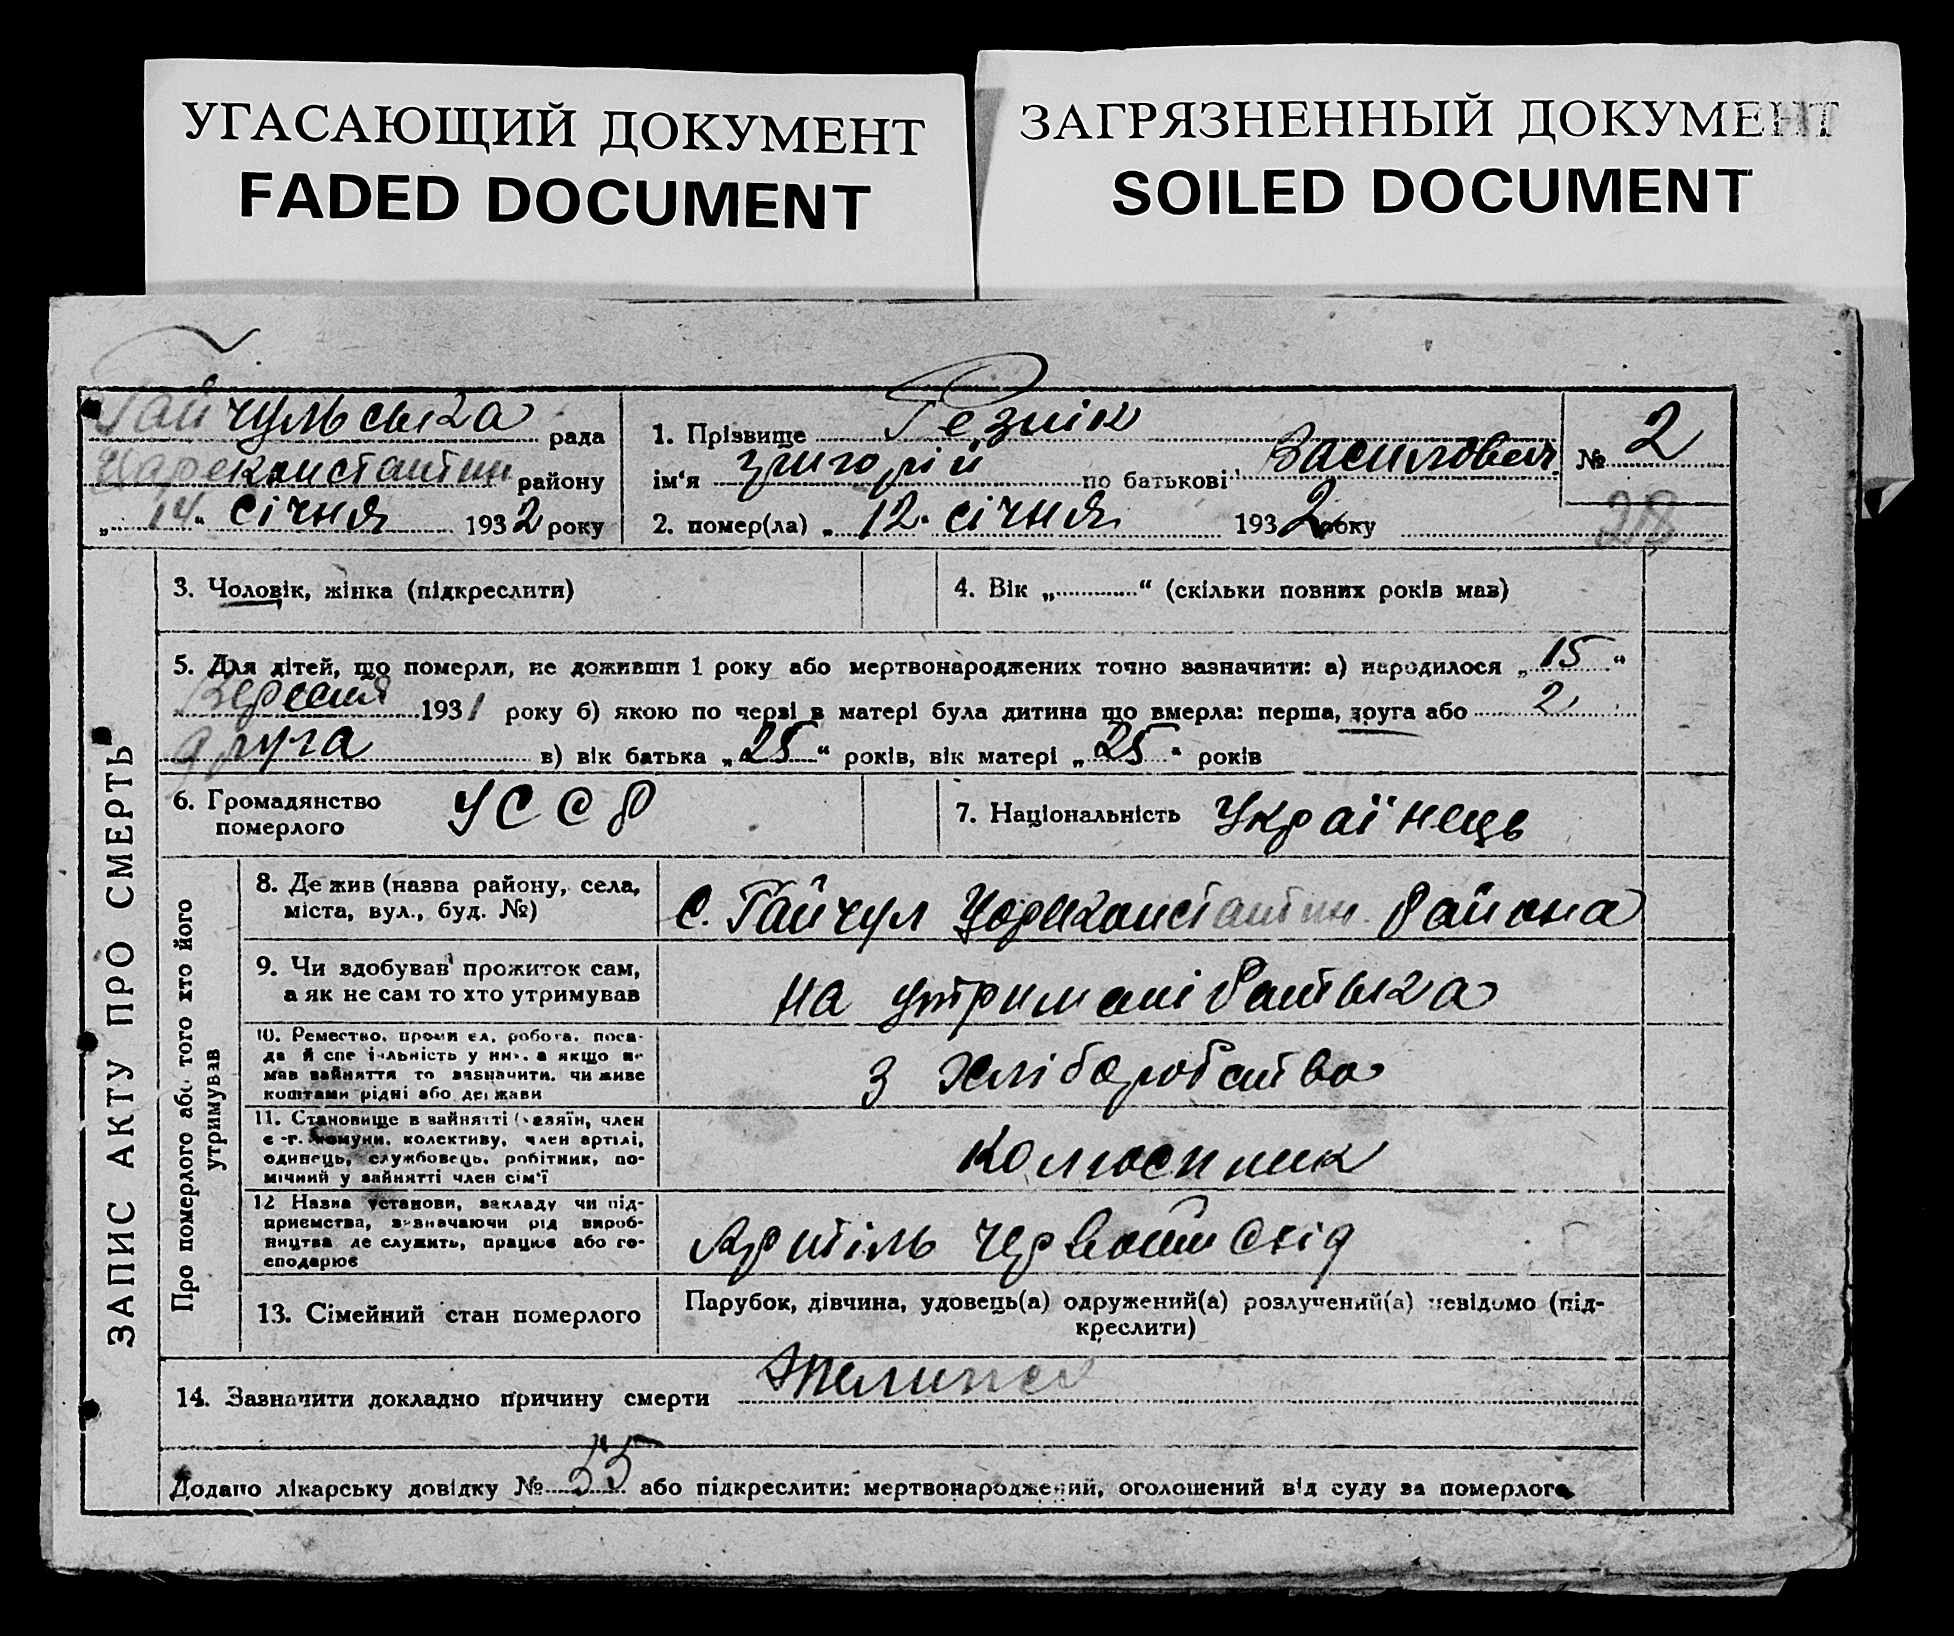 УГАСАЮЩИЙ ДОКУМЕНТ
FADED DOCUMENT
ЗАГРЯЗНЕННЫЙ ДОКУМЕНТ
SOILED DOCUMENT
Гайчульська рада
Цареконстантин району
„ 14 “ січня 1932 року
1. Прізвище Резнік
ім‘я Григорій по батькові Василович
2. помер(ла) „ 12 “ січня 1932 року
№ 2
28
ЗАПИС АКТУ ПРО СМЕРТЬ
3. Чоловік, жінка (підкреслити)
4. Вік „ “ (скільки повних років мав)
5. Для дітей, що померли, не доживши 1 року або мертвонароджених точно зазначити: а) народилося „ 15 “
Вересня 1931 року б) якою по черзі в матері була дитина що вмерла: перша, друга або 2
друга в) вік батька „ 25 “ років, вік матері „ 25 “ років
6. Громадянство
померлого
УССР
7. Національність Українець
Про померлого або того хто його
утримував
8. Де жив (назва району, села,
міста, вул., буд. №)
с. Гайчул Цареконстантин района
9. Чи здобував прожиток сам,
а як не сам то хто утримував
на утримані батька
10. Ремество, промисел, робота, поса-
да й спеціальність у них, а якщо не
мав зайняття то зазначити, чи живе
коштами рідні або держави
з хліборобства
11. Становище в зайнятті (хазяїн, член
с-г. комуни, колективу, член артілі,
одинець, службовець, робітник, по-
мічний у зайнятті член сім‘ї
колгоспник
12 Назва установи, закладу чи під-
приємства, зазначаючи рід вироб-
ництва де служить, працює або го-
сподарює
Артіль Червоний Схід
13. Сімейний стан померлого
Парубок, дівчина, удовець(а) одружений(а) розлучений(а) невідомо (під-
креслити)
14. Зазначити докладно причину смерти
Додано лікарську довідку № 55 або підкреслити: мертвонароджений, оголошений від суду за померлого